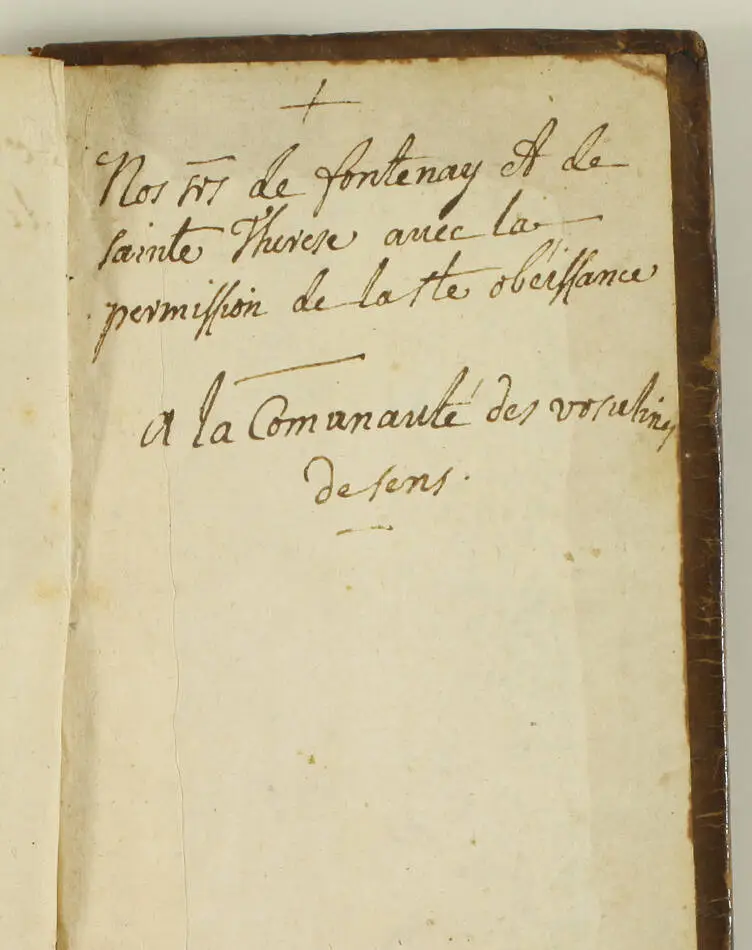 +
Nos srs de fontenay et de
sainte Therese avec la
permission de la ste obéissance
a la Comunauté des vrsulines
de sens.